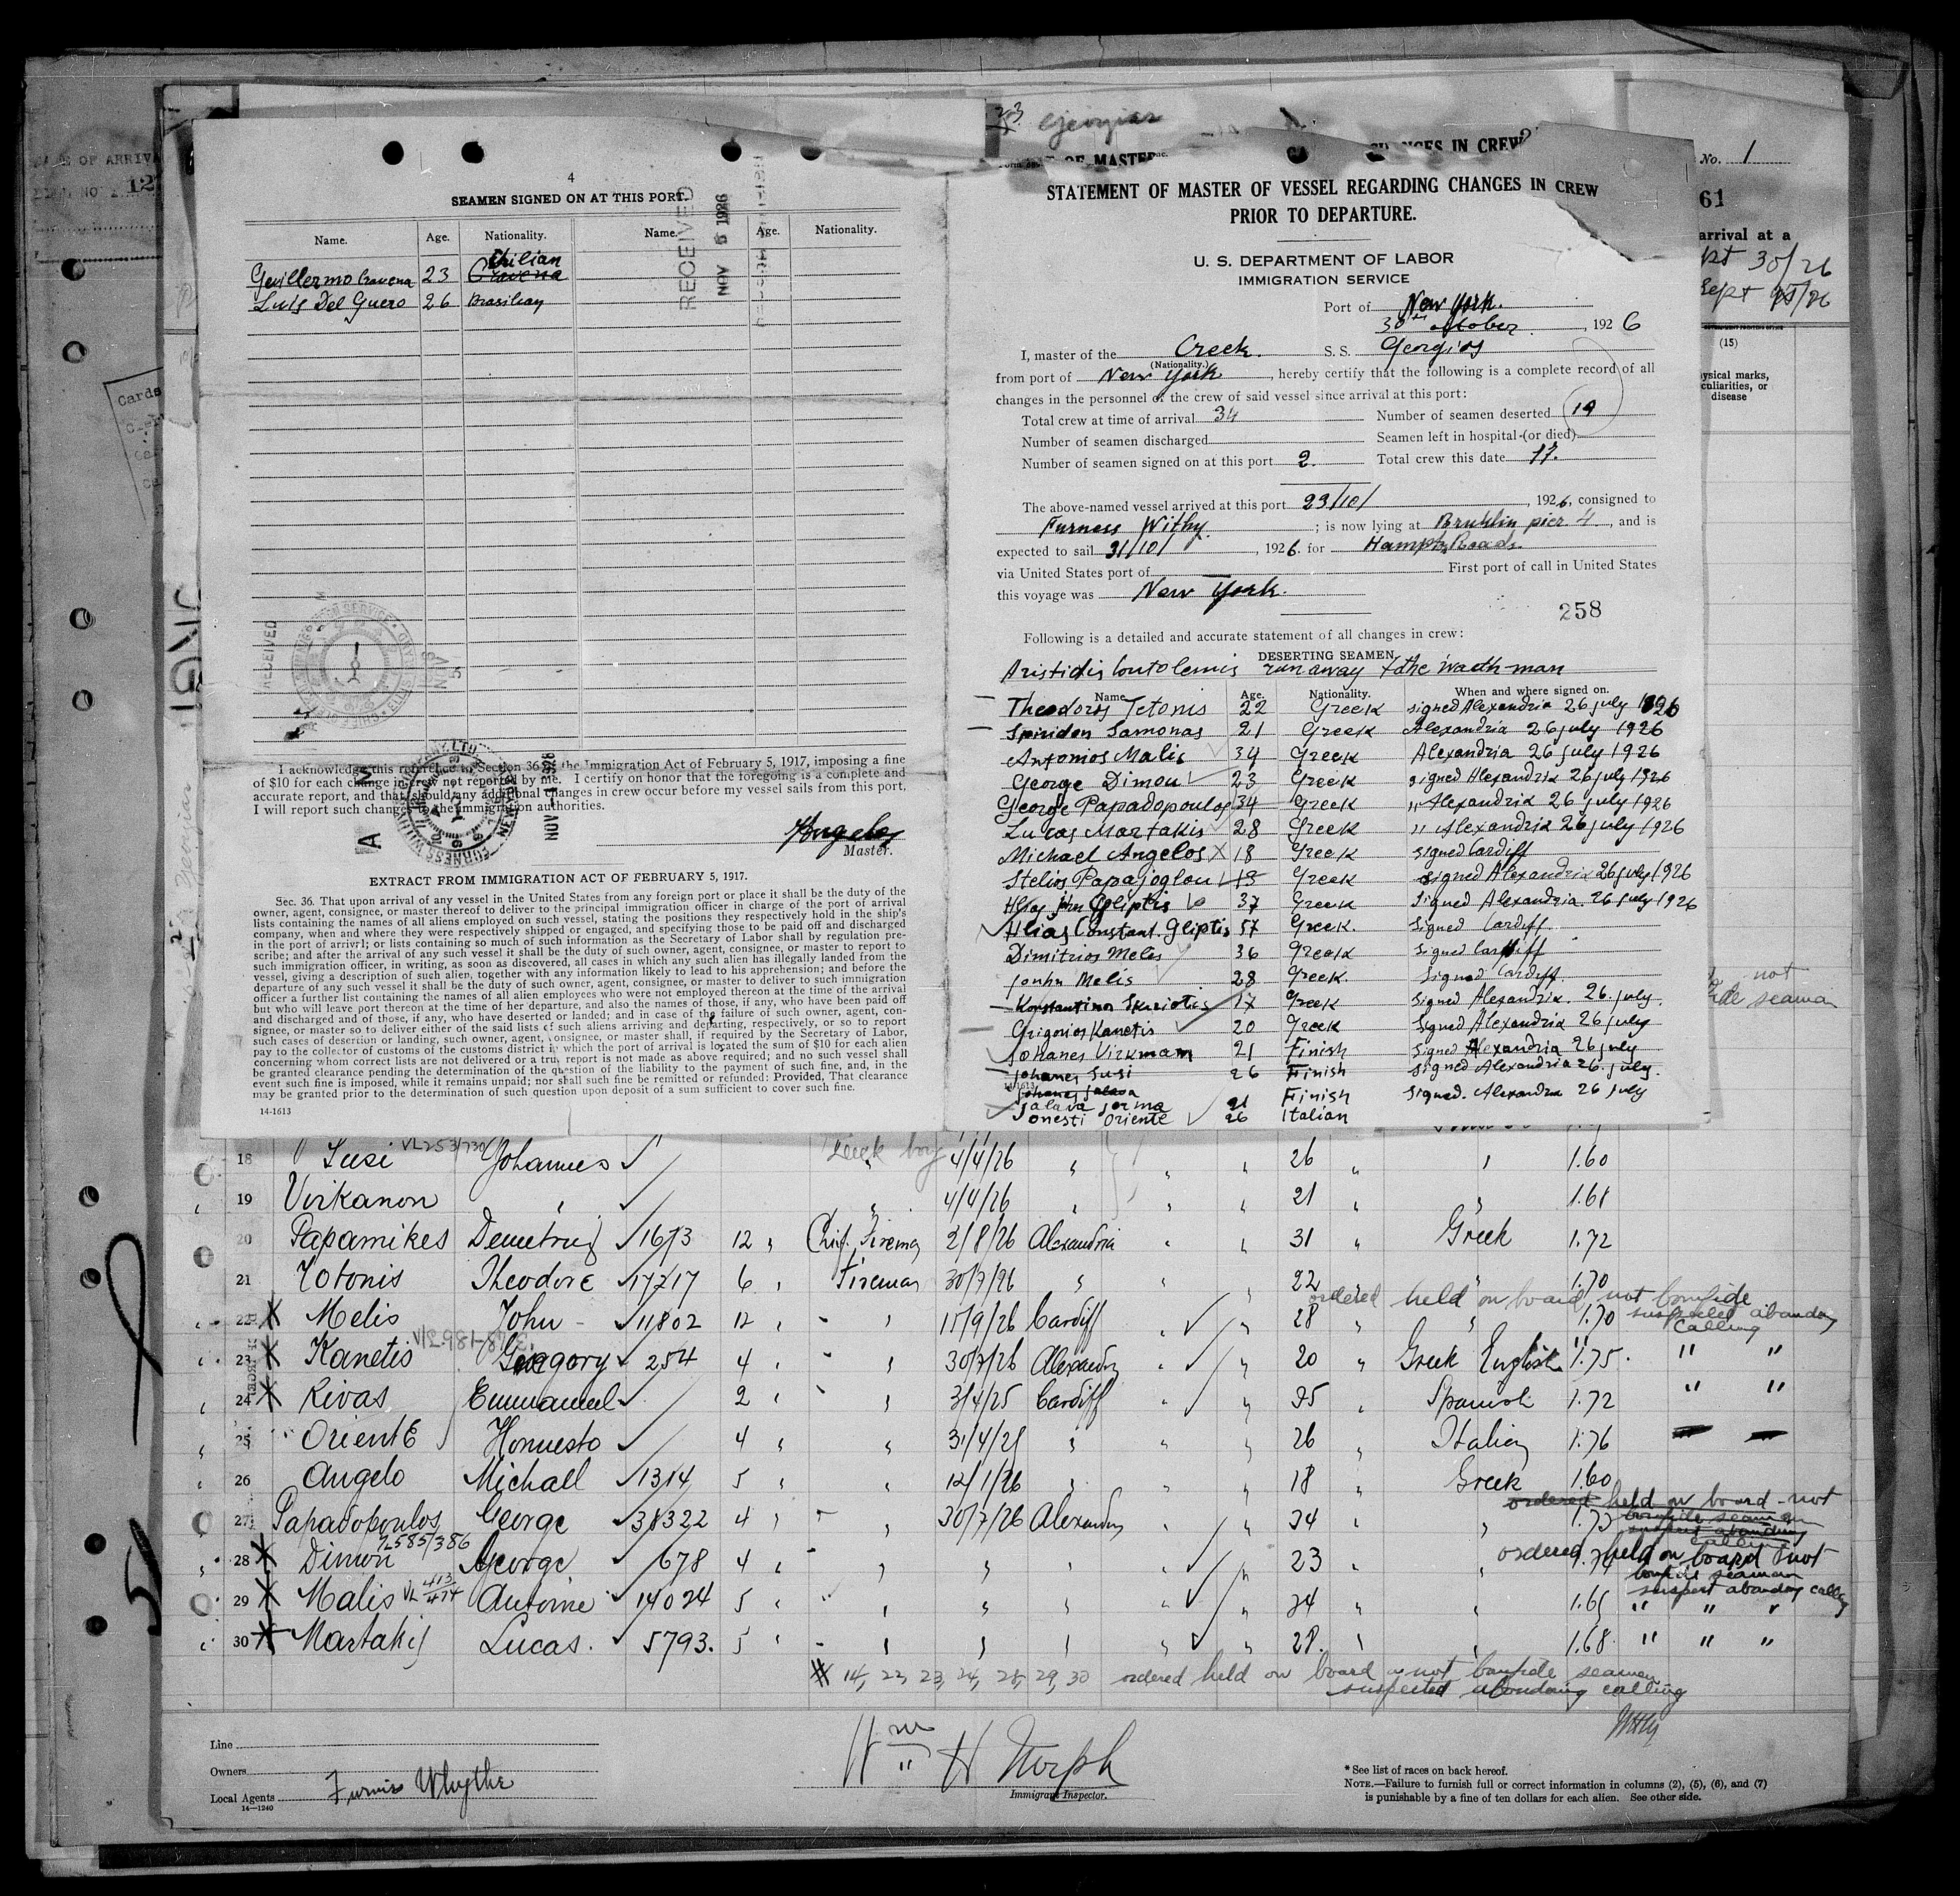 4
SEAMEN SIGNED ON AT THIS PORT.
Name. Age. Nationality. Name. Age. Nationality.
Chilian
Guillermo Cravena 23 Cravena
Luis Del Guero 26 Brasilian
RECEIVED
NOV 5 1926
RECEIVED
NOV 5
I acknowledge this reference to Section 36 of the Immigration Act of February 5, 1917, imposing a fine
of $10 for each change in crew not reported by me. I certify on honor that the foregoing is a complete and
accurate report, and that should any additional changes in crew occur before my vessel sails from this port,
I will report such changes to the immigration authorities.
A M
NOV -1 1926
Angelos
Master.
EXTRACT FROM IMMIGRATION ACT OF FEBRUARY 5, 1917.
Sec. 36. That upon arrival of any vessel in the United States from any foreign port or place it shall be the duty of the
owner, agent, consignee, or master thereof to deliver to the principal immigration officer in charge of the port of arrival
lists containing the names of all aliens employed on such vessel, stating the positions they respectively hold in the ship's
company, when and where they were respectively shipped or engaged, and specifying those to be paid off and discharged
in the port of arrival; or lists containing so much of such information as the Secretary of Labor shall by regulation pre-
scribe; and after the arrival of any such vessel it shall be the duty of such owner, agent, consignee, or master to report to
such immigration officer, in writing, as soon as discovered, all cases in which any such alien has illegally landed from the
vessel, giving a description of such alien, together with any information likely to lead to his apprehension; and before the
departure of any such vessel it shall be the duty of such owner, agent, consignee, or master to deliver to such immigration
officer a further list containing the names of all alien employees who were not employed thereon at the time of the arrival
but who will leave port thereon at the time of her departure, and also the names of those, if any, who have been paid off
and discharged and of those, if any, who have deserted or landed; and in case of the failure of such owner, agent, con-
signee, or master so to deliver either of the said lists of such aliens arriving and departing, respectively, or so to report
such cases of desertion or landing, such owner, agent, consignee, or master shall, if required by the Secretary of Labor,
pay to the collector of customs of the customs district in which the port of arrival is located the sum of $10 for each alien
concerning whom correct lists are not delivered or a true report is not made as above required; and no such vessel shall
be granted clearance pending the determination of the question of the liability to the payment of such fine, and, in the
event such fine is imposed, while it remains unpaid; nor shall such fine be remitted or refunded: Provided, That clearance
may be granted prior to the determination of such question upon deposit of a sum sufficient to cover such fine.
14-1613
Georgios
STATEMENT OF MASTER OF VESSEL REGARDING CHANGES IN CREW
PRIOR TO DEPARTURE.
U. S. DEPARTMENT OF LABOR
IMMIGRATION SERVICE
Port of New York.
30th October, 1926
I, master of the Creek. S. S. Georgios
(Nationality.)
from port of New York, hereby certify that the following is a complete record of all
changes in the personnel of the crew of said vessel since arrival at this port:
Total crew at time of arrival 34 Number of seamen deserted 19
Number of seamen discharged Seamen left in hospital (or died)
Number of seamen signed on at this port 2. Total crew this date 17.
The above-named vessel arrived at this port 23/10/, 1926, consigned to
Furness Withy; is now lying at Bruklin pier 4, and is
expected to sail 31/10/, 1926. for Hampt. Roads.
via United States port of First port of call in United States
this voyage was New York.
258
Following is a detailed and accurate statement of all changes in crew:
DESERTING SEAMEN
Aristidis Coutolemis run away + the wacth-man
Name Age. Nationality. When and where signed on.
Theodoros Tetonis 22 Greek signed Alexandria 26 july 1926
Spiridon Samonas 21 Greek Alexandria 26 july 1926
Antonios Malis 34 Greek Alexandria 26 july 1926
George Dimou 23 Greek signed Alexandria 26 july 1926
George Papadopoulos 34 Greek ,, Alexandria 26 july 1926
Lucas Martakis 28 Greek ,, Alexandria 26 july 1926
Michael Angelos X 18 Greek signed Cardiff
Stelios Papajoglou 18 Greek signed Alexandria 26 july 1926
Hlias john Gliptis 37 Greek Signed Alexandria 26 july 1926
Hlias Constant. Gliptis 57 Greek. signed Cardiff
Dimitrios Meles 36 Greek Signed Cardiff
Jonhn Melis 28 Greek. Signed Cardiff.
Konstantinos Skuriotis 17 Greek signed Alexandria. 26. july.
Grigorios Kanetis 20 Greek Signed Alexandria 26 july
Johanes Virkman 21 Finish Signed Alexandria 26 july
Johanes Susi 26 Finish signed Alexandria 26. july.
14-1613
Johanes Jalava
Jalava Jorma 21 Finish Signed. Alexandria 26 july
Jonesti Oriente 26 Italian
No. 1
61
arrival at a
Sept 30/26
Sept 25/26
(15)
ysical marks,
culiarities, or
disease
not
fide seaman
18 Susi Johannes deck boy 4/4/26 26 1.60
19 Virkanon " 4/4/26 21 1.68
20 Papamikes Demetrius 1673 12 Chief Fireman 2/8/26 Alexandria 31 Greek 1.72
21 Totonis Theodore 17217 6 Fireman 30/7/26 22 1.70
ordered held on board not bonfide
22 X Melis John 11802 12 15/9/26 Cardiff 28 1.70 suspected abandon
calling
23 X Kanetis Gregory 254 4 30/7/26 Alexandria 20 Greek English 1.75. " "
24 X Rivas Emmanuel 2 3/4/25 Cardiff 25 Spanish 1.72 " "
25 Oriente Honuesto 4 26 Italian 1.76
26 Angelo Michael 1314 5 12/1/26 18 Greek 1.60
ordered held on board - not
27 Papadopoulos George 38322 4 30/7/26 Alexandria 34 1.73 bonfide seaman
suspect abandon
calling
28 X Dimou George 678 4 23 ordered held on board not
bonfide seaman
suspect abandon calling
29 X Malis Antoine 14024 5 34 1.65 " " "
30 X Martakis Lucas. 5793. 5 28. 1.68 " " "
# 14, 22, 23, 24, 28, 29, 30 ordered held on board as not bonfide seamen
suspected abandoning calling
Line
Owners
Local Agents Furniss Whythe
14-1240
Wm H
Immigrant Inspector.
* See list of races on back hereof.
NOTE.—Failure to furnish full or correct information in columns (2), (5), (6), and (7)
is punishable by a fine of ten dollars for each alien. See other side.